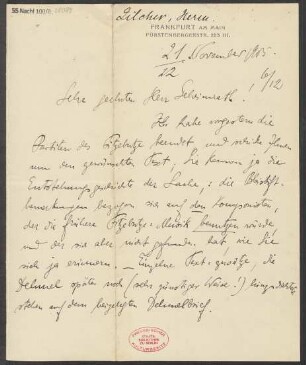 55 Nachl 100/B
Zilcher, Herm.
FRANKFURT AM MAIN
FÜRSTENBERGERSTR. 219 III.
21
22 November 1915.
Sehr geehrter Herr Geheimrath!
Ich habe vorgestern die
Partitur der Fitzebutze beendet und sende Ihnen
nun den gewünschten Text. Sie kennen ja die
Entstehungsgeschichte der Sache: die Bleistift-
bemerkungen bezogen sich auf den Componisten,
der die frühere Fitzebutze-Musik benutzen würde
und der sie aber nicht gefunden hat, wie Sie
sich ja erinnern. – Einzelne Text-zusätze, die
Dehmel später noch (sehr günstiger Weise!) hinzudichtete
stehen auf dem beigelegten Dehmelbrief.